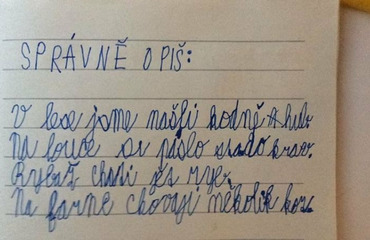 SPRÁVNĚ OPIŠ:
V lese jsme našli hodně hub.
Na louce se páslo stádo krav.
Rybář chodí na ryby.
Na farmě chovají několik koz.